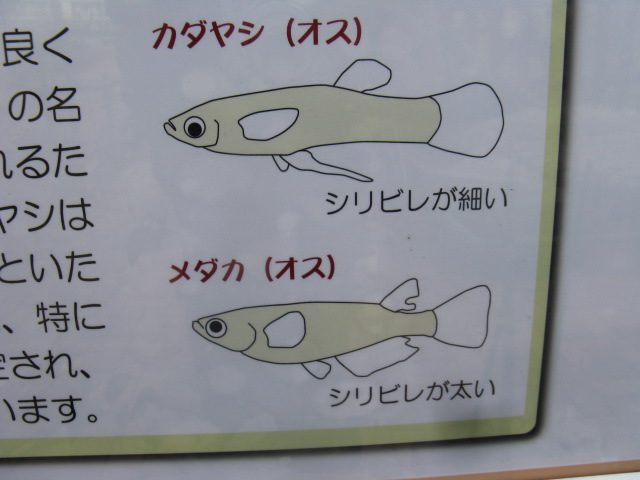 良く
の名
れるた
ヤシは
といた
、特に
定され、
います。
カダヤシ（オス）
シリビレが細い
メダカ（オス）
シリビレが太い